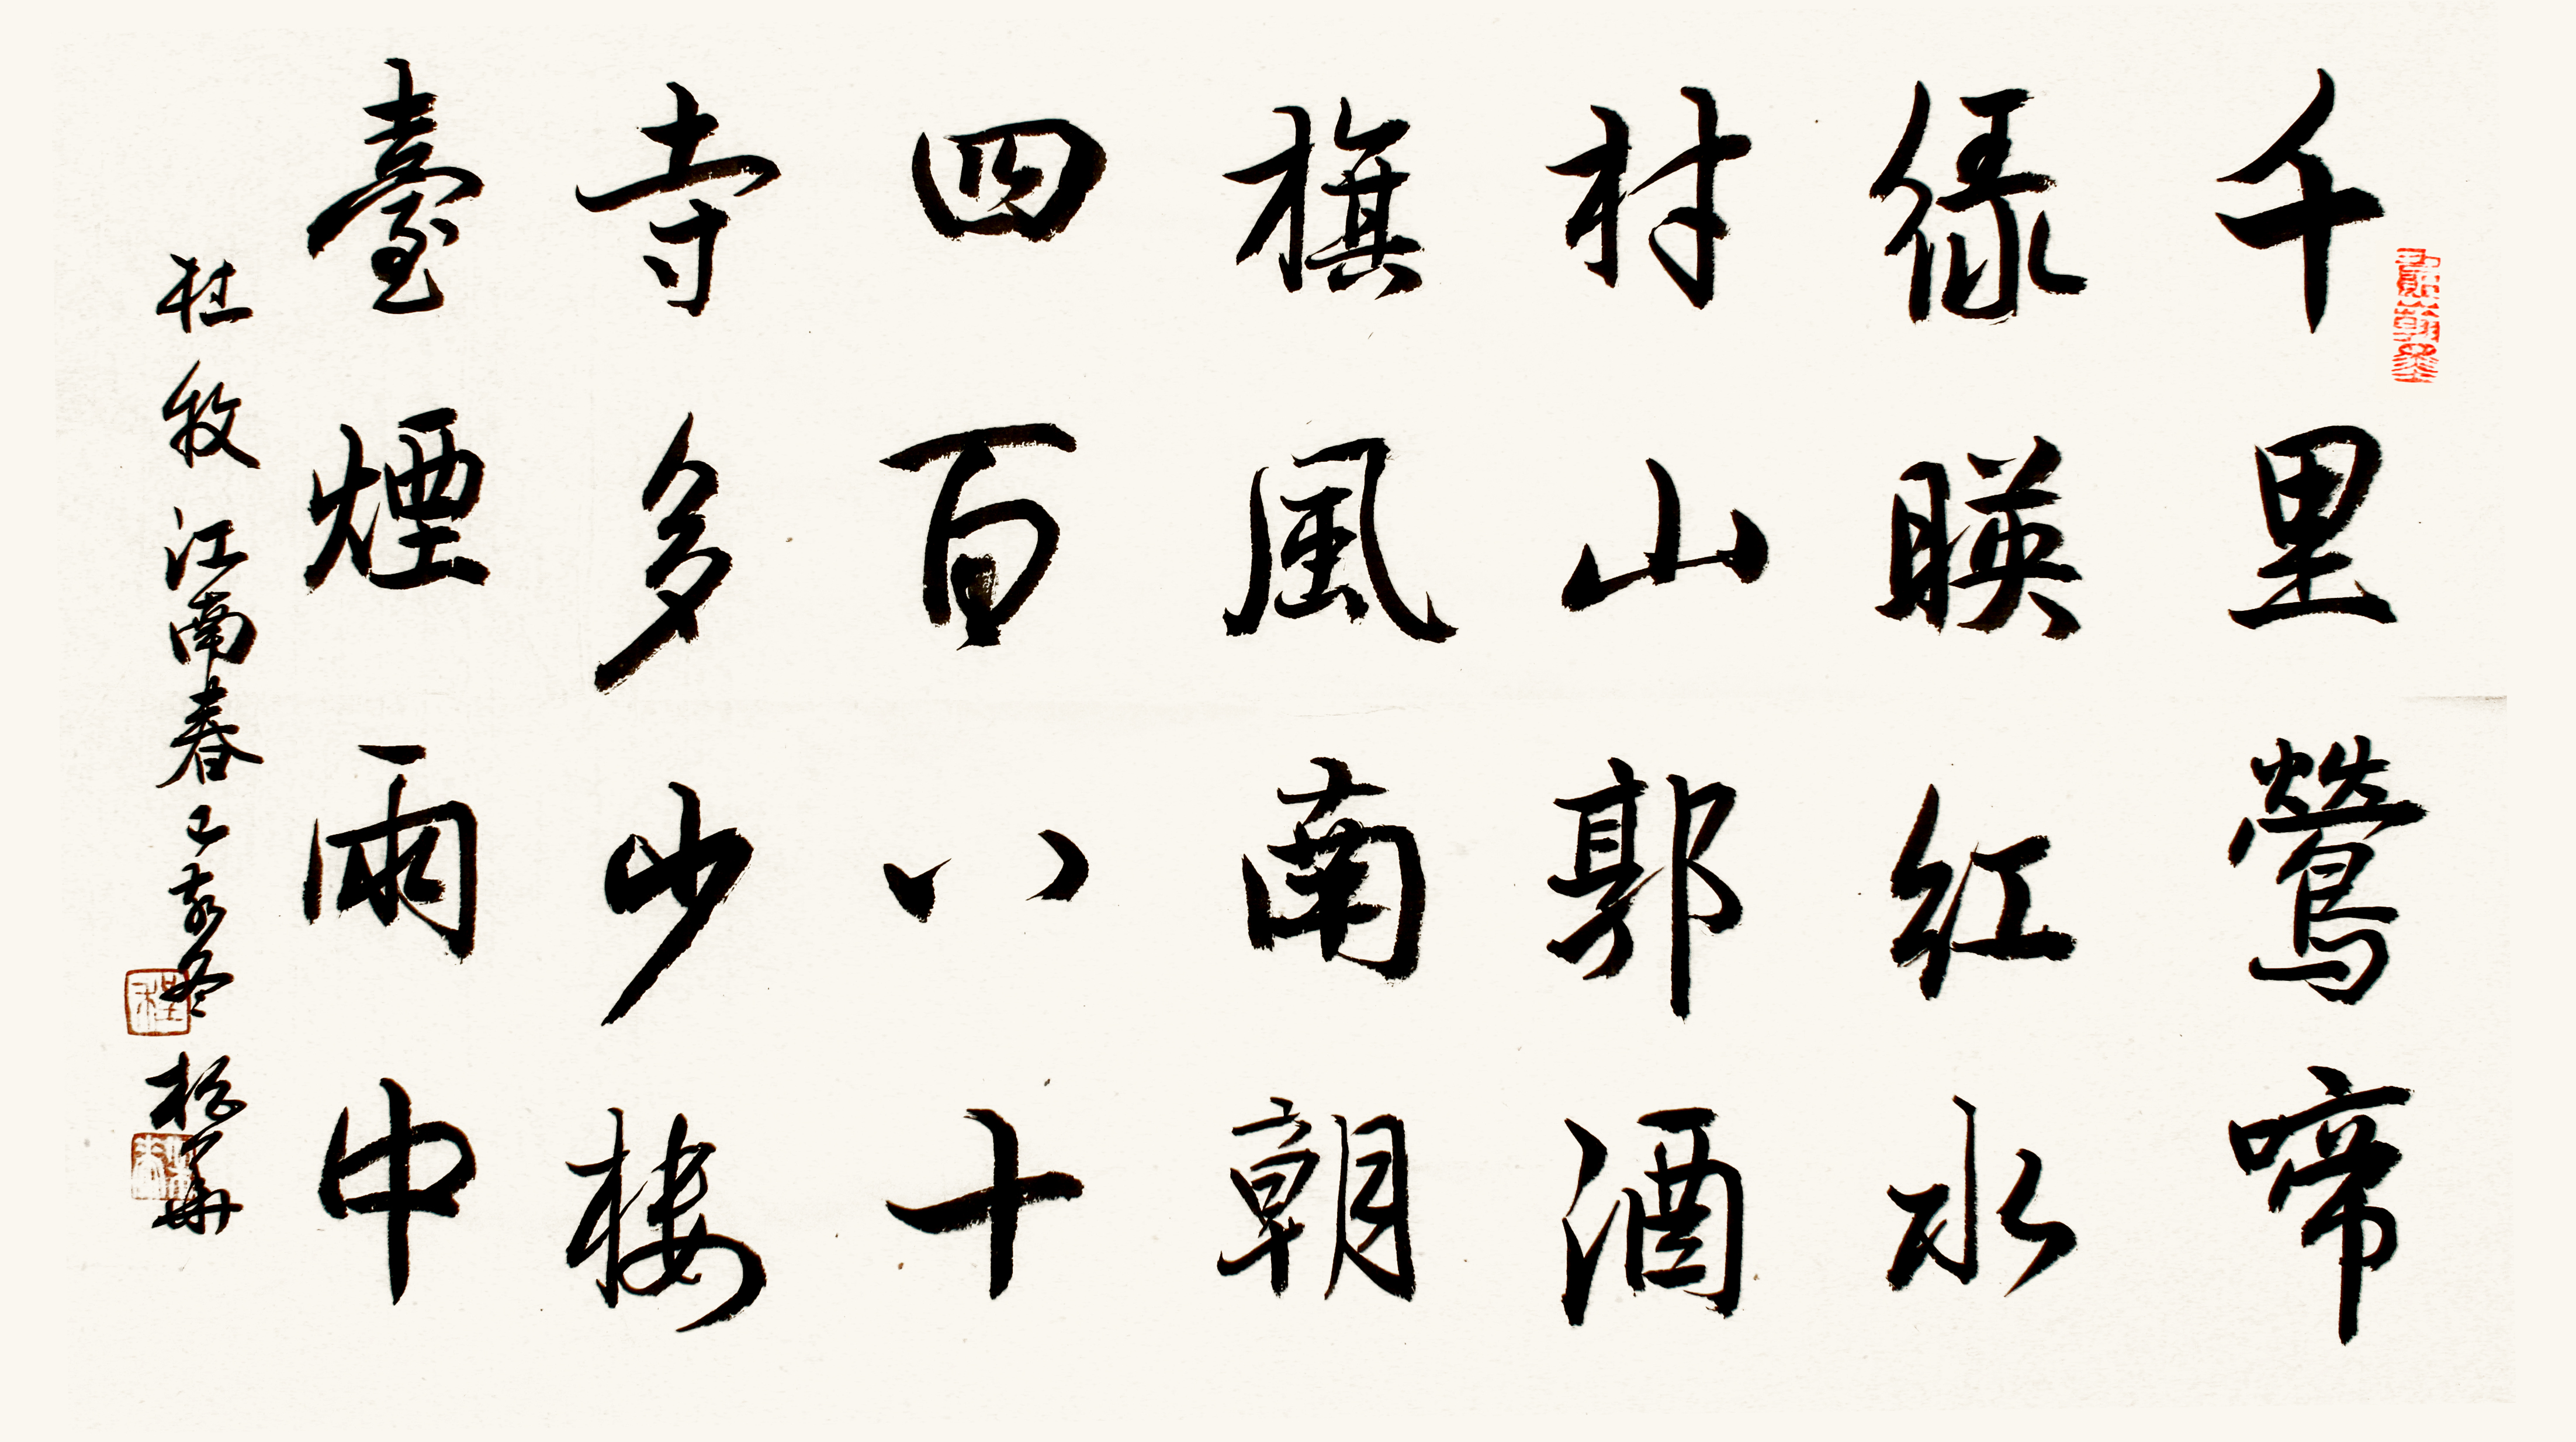 千里鶯啼
緑暎紅水
村山郭酒
旗風南朝
四百八十
寺多少樓
臺煙雨中
杜牧江南春己亥冬 華
翰墨
程